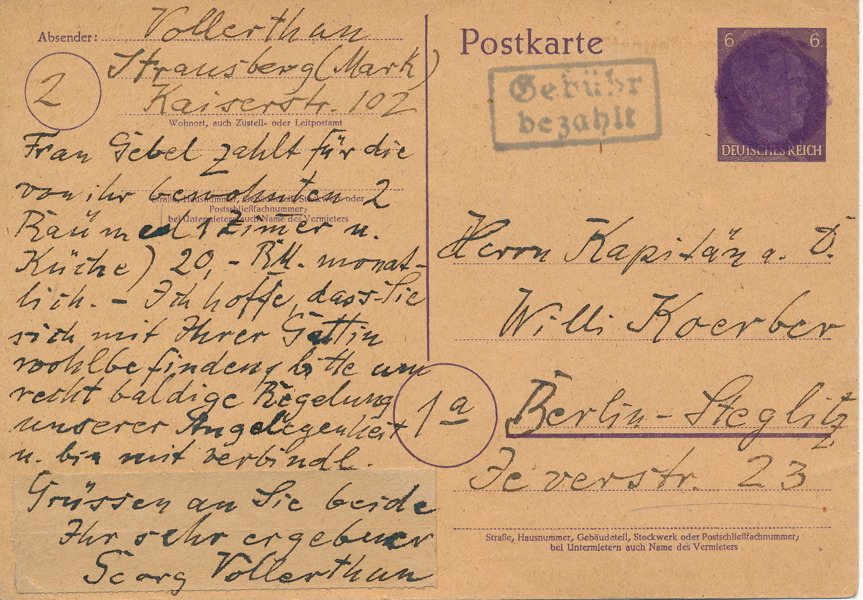 Absender: Vollerthun
Strausberg (Mark)
2
Kaiserstr. 102
Wohnort, auch Zustell- oder Leitpostamt
Frau Gebel zahlt für die
von ihr bewohnten 2
Straße, Hausnummer, Gebäudeteil, Stockwerk oder
Postschließfachnummer;
bei Untermietern auch Name des Vermieters
Räume (1 Zimer u.
Küche) 20,- RM. monat-
lich. - Ich hoffe, dass Sie
sich mit Ihrer Gattin
wohlbefinden, bitte um
recht baldige Regelung
unserer Angelegenheit
u. bin mit verbindl.
Grüssen an Sie beide
Ihr sehr ergebener
Georg Vollerthun
Postkarte
Gebühr
bezahlt
6 6
DEUTSCHES REICH
Herrn Kapitän a. D.
Willi Koerber
1a
Berlin-Steglitz
Jeverstr. 23
Straße, Hausnummer, Gebäudeteil, Stockwerk oder Postschließfachnummer;
bei Untermietern auch Name des Vermieters